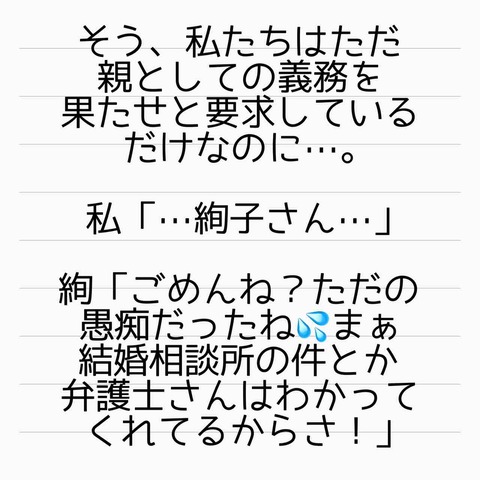 そう、私たちはただ
親としての義務を
果たせと要求している
だけなのに…。
私「…絢子さん…」
絢「ごめんね？ただの
愚痴だったね💦まぁ
結婚相談所の件とか
弁護士さんはわかって
くれてるからさ！」